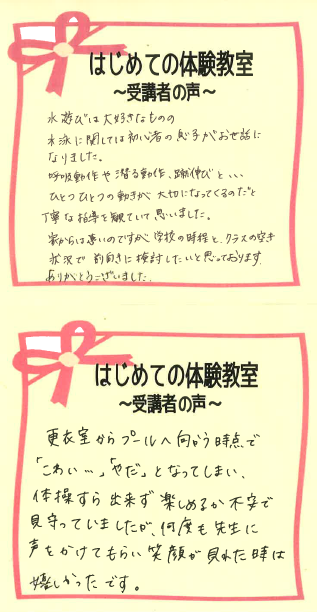 はじめての体験教室
～受講者の声～
水遊びは大好きなものの
水泳に関しては初心者の息子がお世話に
なりました。
呼吸動作や潜る動作、蹴伸びと、、、
ひとつひとつの動きが大切になってくるのだと
丁寧な指導を観ていて思いました。
家からは遠いのですが学校の時程と、クラスの空き
状況で前向きに検討したいと思っております。
ありがとうございました。
はじめての体験教室
～受講者の声～
更衣室からプールへ向かう時点で
「こわい…」「やだ」となってしまい、
体操すら出来ず楽しめるか不安で
見守っていましたが、何度も先生に
声をかけてもらい笑顔が見れた時は
嬉しかったです。